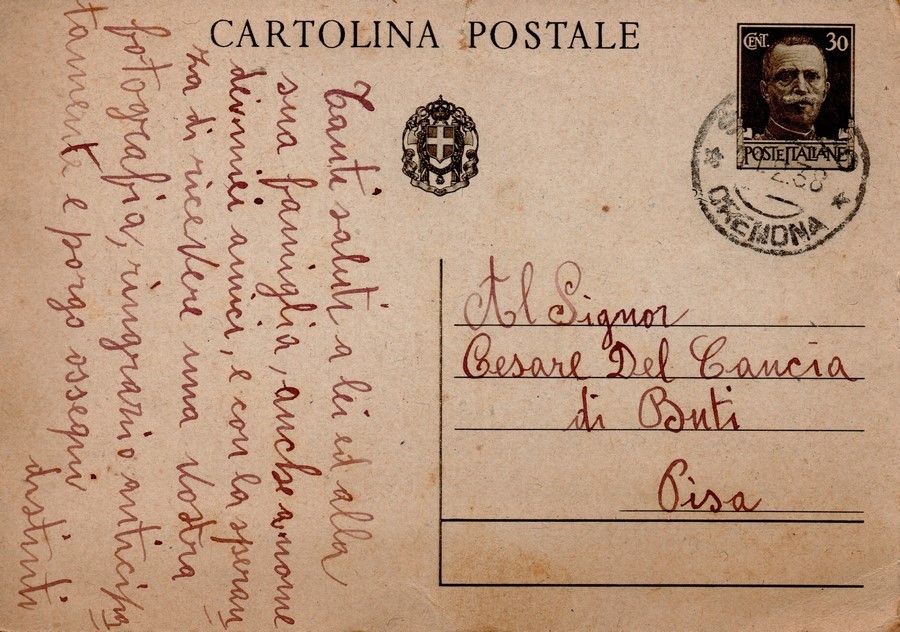 CARTOLINA POSTALE
CENT. 30
POSTE ITALIANE
2.38
Al Signor
Cesare Del Cancia
di Buti
Pisa
Tanti saluti a lei ed alla
sua famiglia, anche a nome
dei miei amici, e con la speran
za di ricevere una vostra
fotografia, ringrazio anticipa
tamente e porgo ossequi
distinti